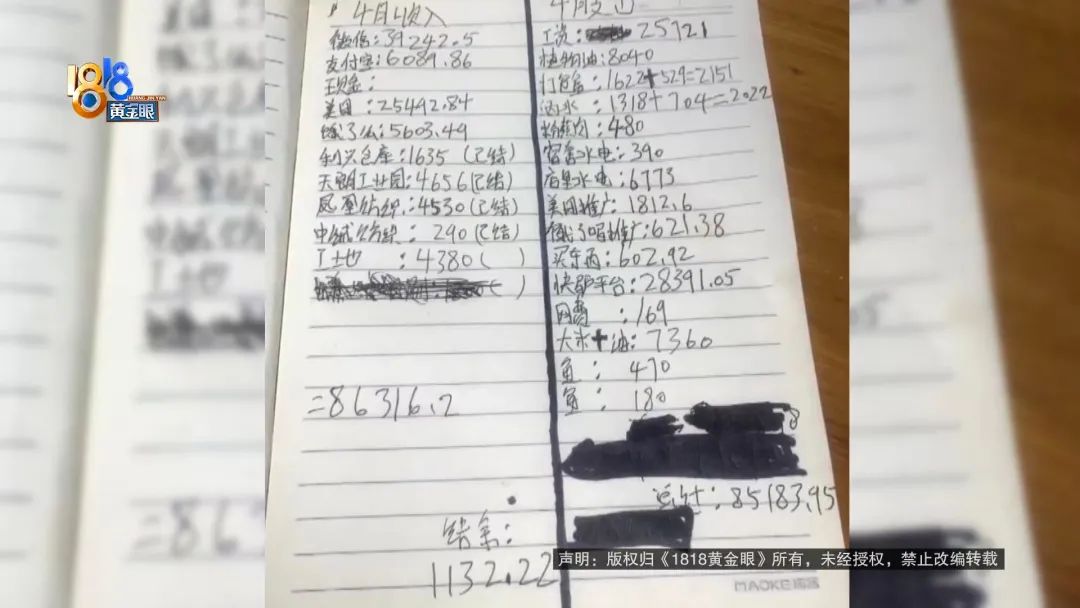 1818
黄金眼
HUANG JIN YAN
4月收入
微信:39242.5
支付宝:6089.86
现金:
美团:25492.84
饿了么:5603.49
利兴仓库:1635(已结)
天明工业园:4656(已结)
凤凰纺织:4530(已结)
中域纺织:290(已结)
工地:4380( )
=86316.2
结余:
1132.22
4月支出
工资:25721
植物油:8040
打包盒:1622+529=2151
酒水:1318+704=2022
粉蒸肉:480
宿舍水电:390
店里水电:6773
美团推广:1812.6
饿了吗推广:621.38
买东西:602.92
快驴平台:28391.05
网费:169
大米+油:7360
鱼:470
鱼:180
总计:85183.95
MAOKE
声明：版权归《1818黄金眼》所有，未经授权，禁止改编转载